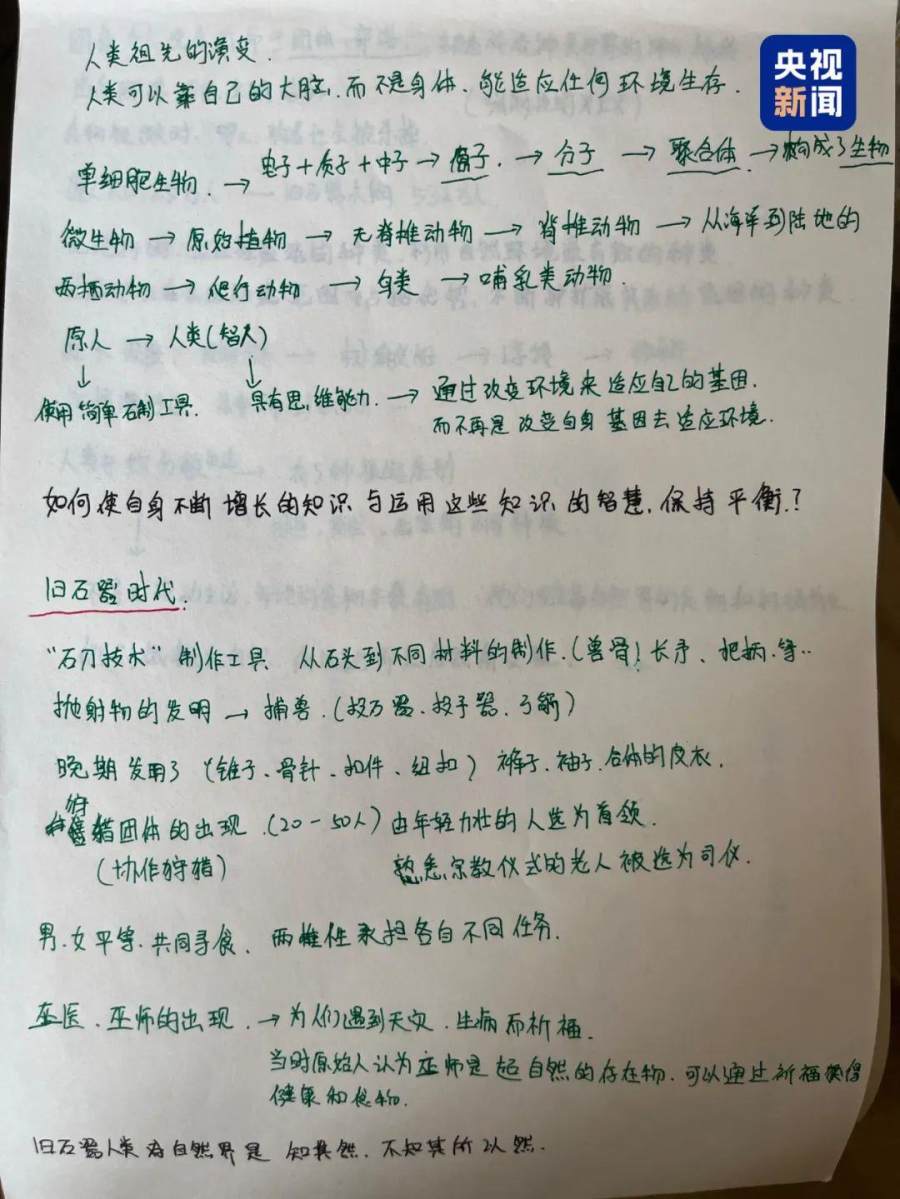 央视
新闻
人类祖先的演变.
人类可以靠自己的大脑,而不是身体,能适应任何环境生存.
电子+质子+中子→原子.→分子→聚合体→构成了生物
单细胞生物.→
微生物→原始植物→无脊椎动物→脊椎动物→从海洋到陆地的
两栖动物→爬行动物→鸟类→哺乳类动物.
原人→人类(智人)
↓ ↓
使用简单石制工具. 具有思维能力.→通过改变环境来适应自己的基因.
而不再是改变自身基因去适应环境.
如何使自身不断增长的知识与运用这些知识的智慧,保持平衡.?
旧石器时代.
“石刀技术”制作工具. 从石头到不同材料的制作.(兽骨!长矛、把柄.等..
抛射物的发明→捕兽.(投石器.投矛器.弓箭)
晚期发明了(锥子、骨针、扣件、纽扣)裤子、袖子.合体的皮衣.
狩猎团体的出现.(20-50人)由年轻力壮的人选为首领.
(协作狩猎) 熟悉宗教仪式的老人被选为司仪.
男.女平等.共同寻食. 两性承担各自不同任务.
巫医.巫师的出现.→为人们遇到天灾.生病而祈福.
当时原始人认为巫师是超自然的存在物.可以通过祈福获得
健康和食物.
旧石器人类对自然界是知其然.不知其所以然.